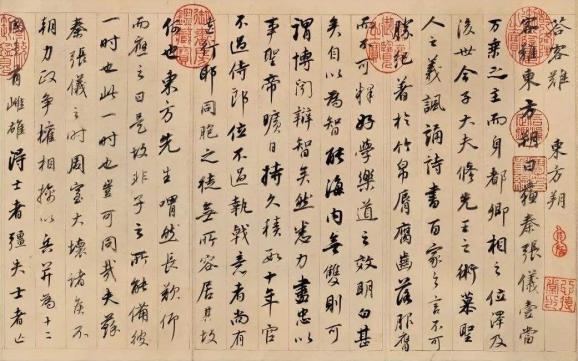 答客難 東方朔
客難東方朔曰蘇秦張儀壹當
萬乘之主而身都卿相之位澤及
後世今子大夫修先王之術慕聖
人之義諷誦詩書百家之言不可
勝紀著於竹帛脣腐齒落服膺
而不可釋好學樂道之效明白甚
矣自以為智能海內無雙則可
謂博聞辯智矣然悉力盡忠以
事聖帝曠日持久積數十年官
不過侍郎位不過執戟意者尚有
遺行耶同胞之徒無所容居其故
何也東方先生喟然長歎仰
而應之曰是故非子之所能備彼
一時也此一時也豈可同哉夫蘇
秦張儀之時周室大壞諸侯不
朝力政爭權相擒以兵并為十二
國未有雌雄得士者彊失士者亡